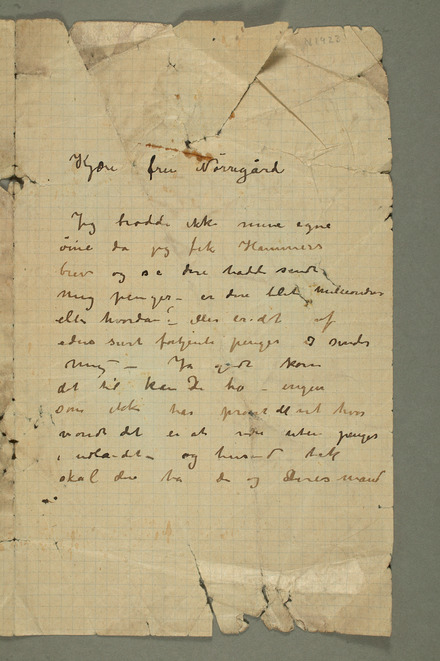 N 1422
Kjære fru Nörregård
Jeg trodde ikke mine egne
öine da jeg fik Hammers
brev og så dere hadde sendt
mig penger – er dere blit millionær
eller hvordan? – Eller er det af
eders surt fortjente penger I sender
mig – Ja godt kom
det til kan De tro – ingen
som ikke har prøvet det vet hvor
vondt det er at være uten penger
i utlandet – og tusend tak
skal dere ha De og Deres mand